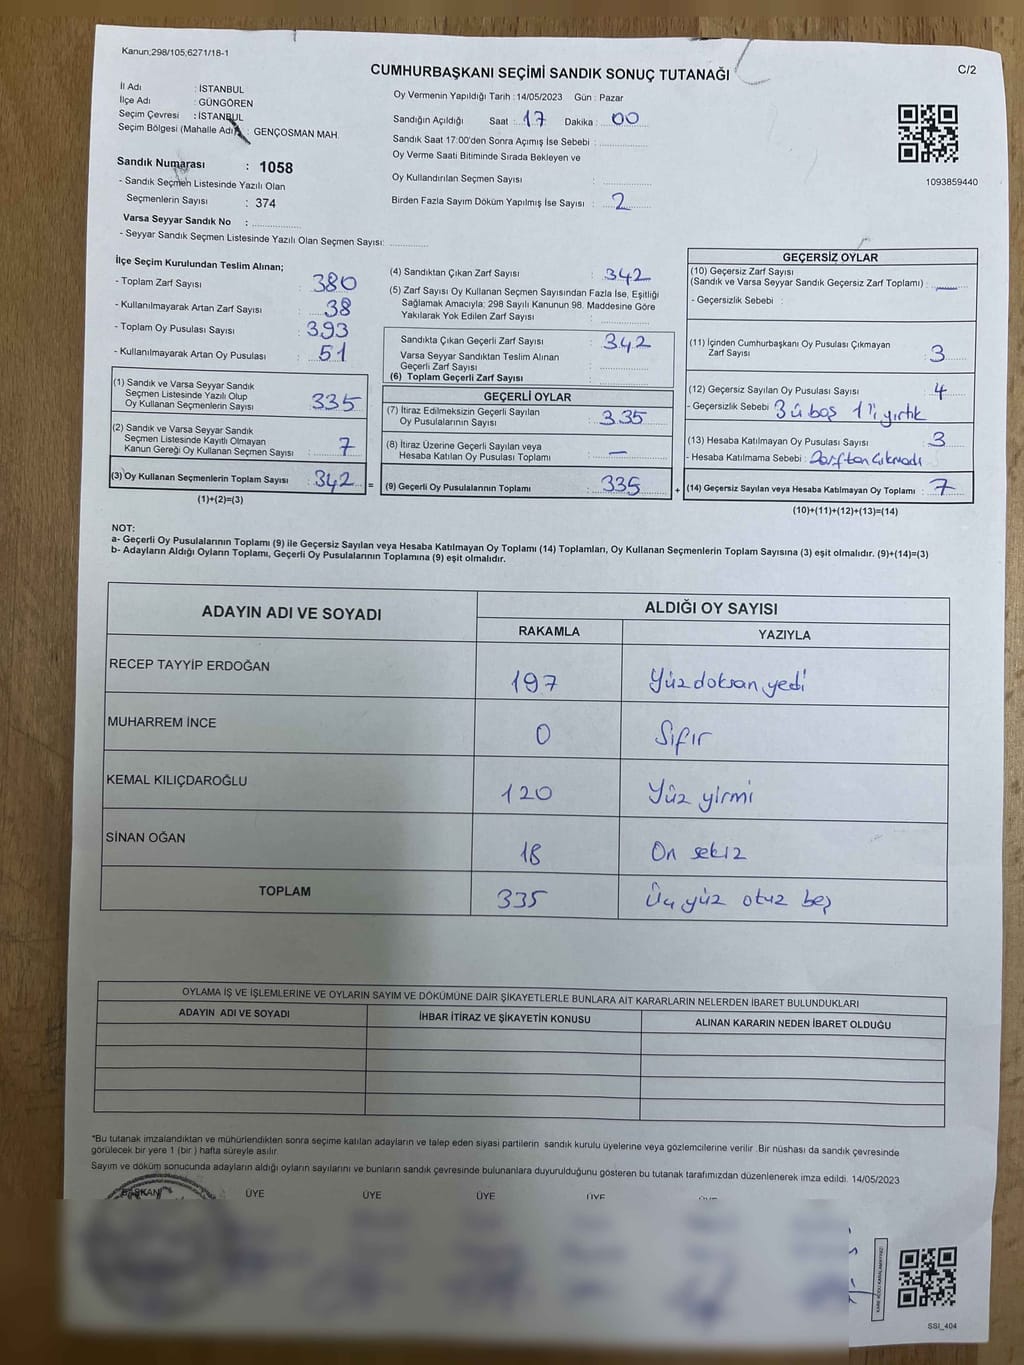 Kanun;298/105,6271/18-1
C/2
CUMHURBAŞKANI SEÇİMİ SANDIK SONUÇ TUTANAĞI
İl Adı : İSTANBUL
İlçe Adı : GÜNGÖREN
Seçim Çevresi : İSTANBUL
Seçim Bölgesi (Mahalle Adı) : GENÇOSMAN MAH.
Sandık Numarası : 1058
- Sandık Seçmen Listesinde Yazılı Olan
Seçmenlerin Sayısı : 374
Varsa Seyyar Sandık No :
- Seyyar Sandık Seçmen Listesinde Yazılı Olan Seçmen Sayısı:
Oy Vermenin Yapıldığı Tarih : 14/05/2023 Gün : Pazar
Sandığın Açıldığı Saat : 17 Dakika : 00
Sandık Saat 17:00'den Sonra Açımış İse Sebebi :
Oy Verme Saati Bitiminde Sırada Bekleyen ve
Oy Kullandırılan Seçmen Sayısı :
Birden Fazla Sayım Döküm Yapılmış İse Sayısı : 2
1093859440
İlçe Seçim Kurulundan Teslim Alınan;
- Toplam Zarf Sayısı : 380
- Kullanılmayarak Artan Zarf Sayısı : 38
- Toplam Oy Pusulası Sayısı : 393
- Kullanılmayarak Artan Oy Pusulası : 51
(1) Sandık ve Varsa Seyyar Sandık
Seçmen Listesinde Yazılı Olup
Oy Kullanan Seçmenlerin Sayısı : 335
(2) Sandık ve Varsa Seyyar Sandık
Seçmen Listesinde Kayıtlı Olmayan
Kanun Gereği Oy Kullanan Seçmen Sayısı : 7
(3) Oy Kullanan Seçmenlerin Toplam Sayısı : 342 =
(1)+(2)=(3)
(4) Sandıktan Çıkan Zarf Sayısı : 342
(5) Zarf Sayısı Oy Kullanan Seçmen Sayısından Fazla İse, Eşitliği
Sağlamak Amacıyla; 298 Sayılı Kanunun 98. Maddesine Göre
Yakılarak Yok Edilen Zarf Sayısı :
Sandıkta Çıkan Geçerli Zarf Sayısı : 342
Varsa Seyyar Sandıktan Teslim Alınan
Geçerli Zarf Sayısı :
(6) Toplam Geçerli Zarf Sayısı :
GEÇERLİ OYLAR
(7) İtiraz Edilmeksizin Geçerli Sayılan
Oy Pusulalarının Sayısı : 335
(8) İtiraz Üzerine Geçerli Sayılan veya
Hesaba Katılan Oy Pusulası Toplamı : —
(9) Geçerli Oy Pusulalarının Toplamı : 335 +
GEÇERSİZ OYLAR
(10) Geçersiz Zarf Sayısı
(Sandık ve Varsa Seyyar Sandık Geçersiz Zarf Toplamı) : —
- Geçersizlik Sebebi :
(11) İçinden Cumhurbaşkanı Oy Pusulası Çıkmayan
Zarf Sayısı : 3
(12) Geçersiz Sayılan Oy Pusulası Sayısı : 4
- Geçersizlik Sebebi : 3 ü boş 1'i yırtık
(13) Hesaba Katılmayan Oy Pusulası Sayısı : 3
- Hesaba Katılmama Sebebi : Zarftan Çıkmadı
(14) Geçersiz Sayılan veya Hesaba Katılmayan Oy Toplamı : 7
(10)+(11)+(12)+(13)=(14)
NOT:
a- Geçerli Oy Pusulalarının Toplamı (9) ile Geçersiz Sayılan veya Hesaba Katılmayan Oy Toplamı (14) Toplamları, Oy Kullanan Seçmenlerin Toplam Sayısına (3) eşit olmalıdır. (9)+(14)=(3)
b- Adayların Aldığı Oyların Toplamı, Geçerli Oy Pusulalarının Toplamına (9) eşit olmalıdır.
ADAYIN ADI VE SOYADI ALDIĞI OY SAYISI
RAKAMLA YAZIYLA
RECEP TAYYİP ERDOĞAN 197 Yüzdoksan yedi
MUHARREM İNCE 0 Sıfır
KEMAL KILIÇDAROĞLU 120 Yüz yirmi
SİNAN OĞAN 18 On sekiz
TOPLAM 335 Üç yüz otuz beş
OYLAMA İŞ VE İŞLEMLERİNE VE OYLARIN SAYIM VE DÖKÜMÜNE DAİR ŞİKAYETLERLE BUNLARA AİT KARARLARIN NELERDEN İBARET BULUNDUKLARI
ADAYIN ADI VE SOYADI İHBAR İTİRAZ VE ŞİKAYETİN KONUSU ALINAN KARARIN NEDEN İBARET OLDUĞU
*Bu tutanak imzalandıktan ve mühürlendikten sonra seçime katılan adayların ve talep eden siyasi partilerin sandık kurulu üyelerine veya gözlemcilerine verilir. Bir nüshası da sandık çevresinde
görülecek bir yere 1 (bir) hafta süreyle asılır.
Sayım ve döküm sonucunda adayların aldığı oyların sayılarını ve bunların sandık çevresinde bulunanlara duyurulduğunu gösteren bu tutanak tarafımızdan düzenlenerek imza edildi. 14/05/2023
BAŞKAN ÜYE ÜYE ÜYE ÜYE
KARE KODU KARALAMAYINIZ!
SSI_404